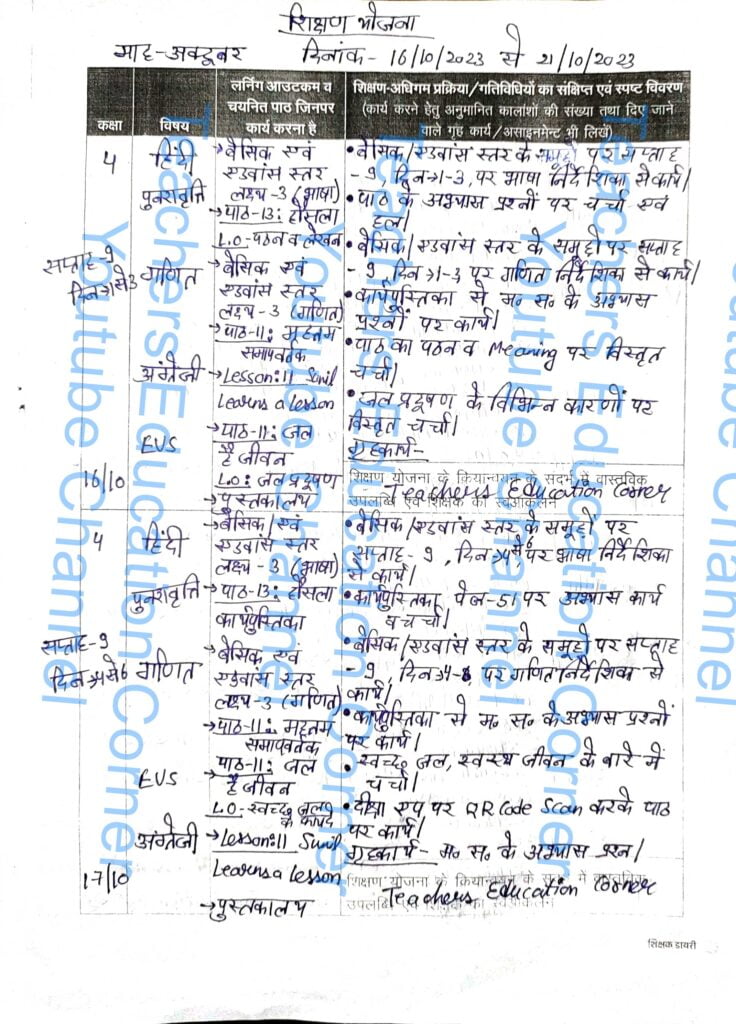 शिक्षण योजना
माह-अक्टूबर दिनांक- 16/10/2023 से 21/10/2023
कक्षा
विषय
लर्निंग आउटकम व
चयनित पाठ जिनपर
कार्य करना है
शिक्षण-अधिगम प्रक्रिया/गतिविधियों का संक्षिप्त एवं स्पष्ट विवरण
(कार्य करने हेतु अनुमानित कालांशों की संख्या तथा दिए जाने
वाले गृह कार्य/असाइनमेंट भी लिखें)
4
हिंदी
पुनरावृत्ति
सप्ताह-9
दिन→1से3
गणित
अंग्रेजी
EVS
16/10
→बेसिक एवं
एडवांस स्तर
लक्ष्य-3 (भाषा)
→पाठ-13:
L.O-पठन व लेखन
→बेसिक एवं
एडवांस स्तर
लक्ष्य-3 (गणित)
→पाठ-11: महत्तम
समापवर्तक
→Lesson:11 Sunil
Learns a lesson
→पाठ-11: जल
है जीवन
L.O: जल प्रदूषण
→पुस्तकालय
•बेसिक/एडवांस स्तर के समूहों पर सप्ताह
-9, दिन→1-3, पर भाषा निर्देशिका से कार्य।
•पाठ के अभ्यास प्रश्नों पर चर्चा एवं
हल।
•बेसिक/एडवांस स्तर के समूहों पर सप्ताह
-9, दिन→1-3 पर गणित निर्देशिका से कार्य।
•कार्यपुस्तिका से म॰ स॰ के अभ्यास
प्रश्नों पर कार्य।
•पाठ का पठन व Meaning पर विस्तृत
चर्चा।
•जल प्रदूषण के विभिन्न कारणों पर
विस्तृत चर्चा।
गृहकार्य-
शिक्षण योजना के क्रियान्वयन के संदर्भ में वास्तविक
उपलब्धि एवं शिक्षक का स्वआकलन
Teachers Education Corner
4
हिंदी
पुनरावृत्ति
सप्ताह-9
दिन→4से6
गणित
EVS
अंग्रेजी
17/10
→बेसिक/एवं
एडवांस स्तर
लक्ष्य-3 (भाषा)
→पाठ-13:
कार्यपुस्तिका
→बेसिक एवं
एडवांस स्तर
लक्ष्य-3 (गणित)
→पाठ-11: महत्तम
समापवर्तक
→पाठ-11: जल
है जीवन
L.O-स्वच्छ जल
के फायदे
→Lesson:11 Sunil
Learns a lesson
→पुस्तकालय
•बेसिक/एडवांस स्तर के समूहों पर
सप्ताह-9, दिन→4से6, पर भाषा निर्देशिका
से कार्य।
•कार्यपुस्तिका पेज-51 पर अभ्यास कार्य
व चर्चा।
•बेसिक/एडवांस स्तर के समूहों पर सप्ताह
-9, दिन→4-6, पर गणित निर्देशिका से
कार्य।
•कार्यपुस्तिका से म॰ स॰ के अभ्यास प्रश्नों
पर कार्य।
•स्वच्छ जल, स्वस्थ जीवन के बारे में
चर्चा।
•दीक्षा एप पर QR Code Scan करके पाठ
पर कार्य।
गृहकार्य- म॰ स॰ के अभ्यास प्रश्न।
शिक्षण योजना के क्रियान्वयन के संदर्भ में वास्तविक
उपलब्धि एवं शिक्षक का स्वआकलन
Teachers Education Corner
शिक्षक डायरी
Teachers Education Corner
Youtube Channel
Teachers Education Corner
Youtube Channel
Teachers Education Corner
Youtube Channel